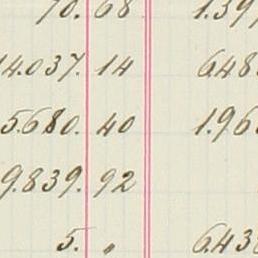 70. 68 1.397
14.037. 14 6.48
5.680. 40 1.96
9.839. 92
5. " 6.43